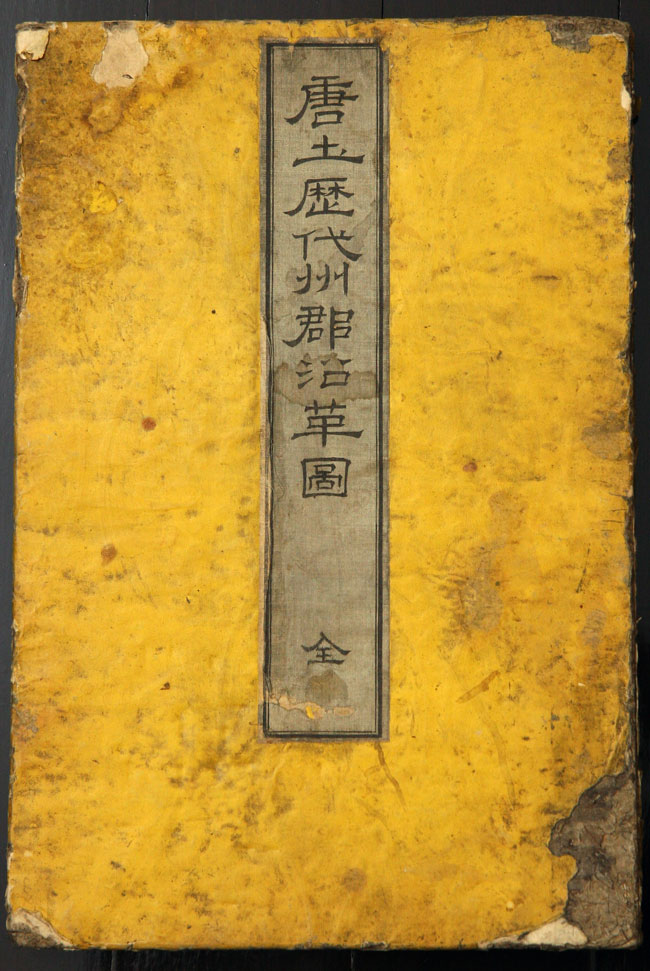 唐土歴代州郡沿革圖
全